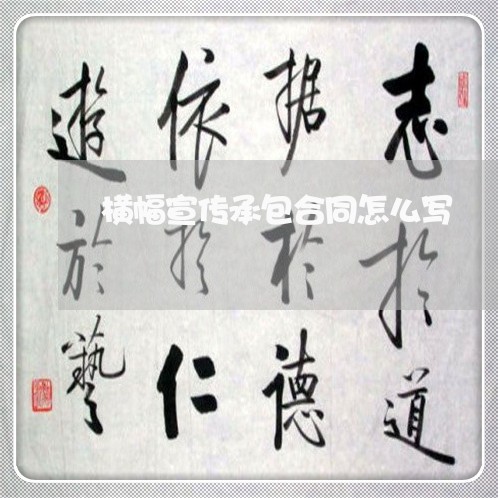 志於道
据於德
依於仁
遊於藝
横幅宣传承包合同怎么写